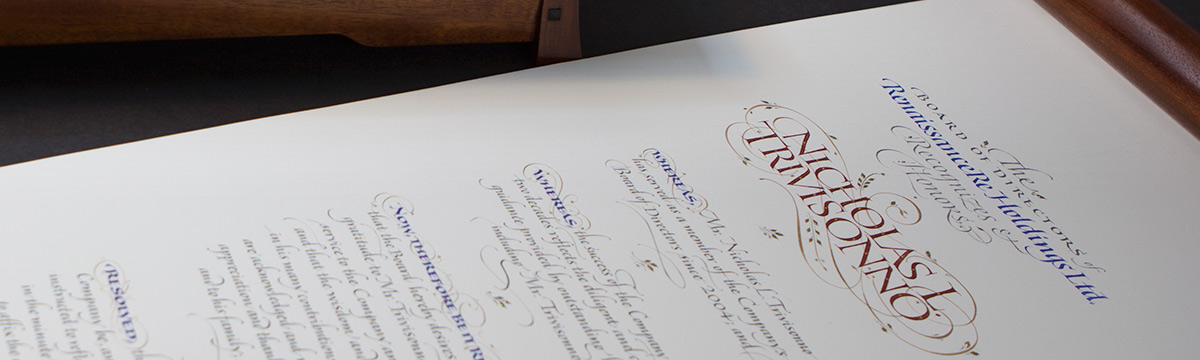 The
BOARD OF DIRECTORS of
RenaissanceRe Holdings Ltd.
Recognizes &
Honors
NICHOLAS L.
TRIVISONNO
WHEREAS, Mr. Nicholas L. Trivisonno
has served as a member of the Company's
Board of Directors since 2004; and
WHEREAS, the success of the Company
reflects the diligent and
guidance provided by outstanding
including Mr. Trivisonno
NOW, THEREFORE BE IT R
that the Board hereby desires
gratitude to Mr. Trivisonno
service to the Company an
and that the wisdom and
in his many contributions
are acknowledged and
appreciation and than
and to his family;
RESOLVED
Company be, an
instructed to refl
in the minute
to affix the